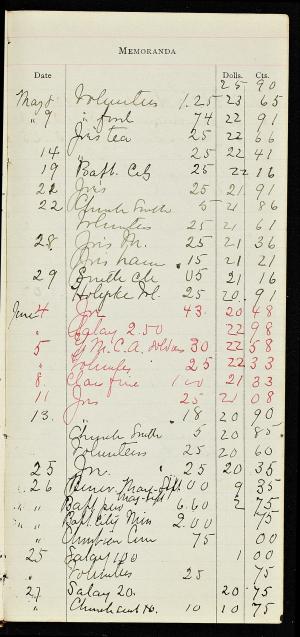 MEMORANDA
Date Dolls. Cts.
25 90
May 8 Volunteers 1.25 23 65
" 9 " food 74 22 91
Jris tea 25 22 66
14 " 25 22 41
19 Bapt. City 25 22 16
22 Jris 25 21 91
22 Church Smith 5 21 86
Volunteers 25 21 61
28 Jris M. 25 21 36
Jris 15 21 21
29 Smith Ch 05 21 16
25 20.91
June 4 Jr 43. 20 48
" Salary 2.50 22 98
5 Y.M.C.A. 30 22 58
" Volunteers 25 22 33
8. Class fine 1 00 21 33
11 Jris 25 21 08
13. " 18 20 90
Church Smith 5 20 85
Volunteers 25 20 60
25 Jr. " 25 20 35
" 26 May-Sept 00 9 35
" " Bapt pew May-Sept 6.60 2 75
" " Bapt. City Miss 2.00 75
" 75 00
25 Salary 1 00 1 00
" Volunteers 25 75
27 Salary 20. 20 75
" Church 10 10 75